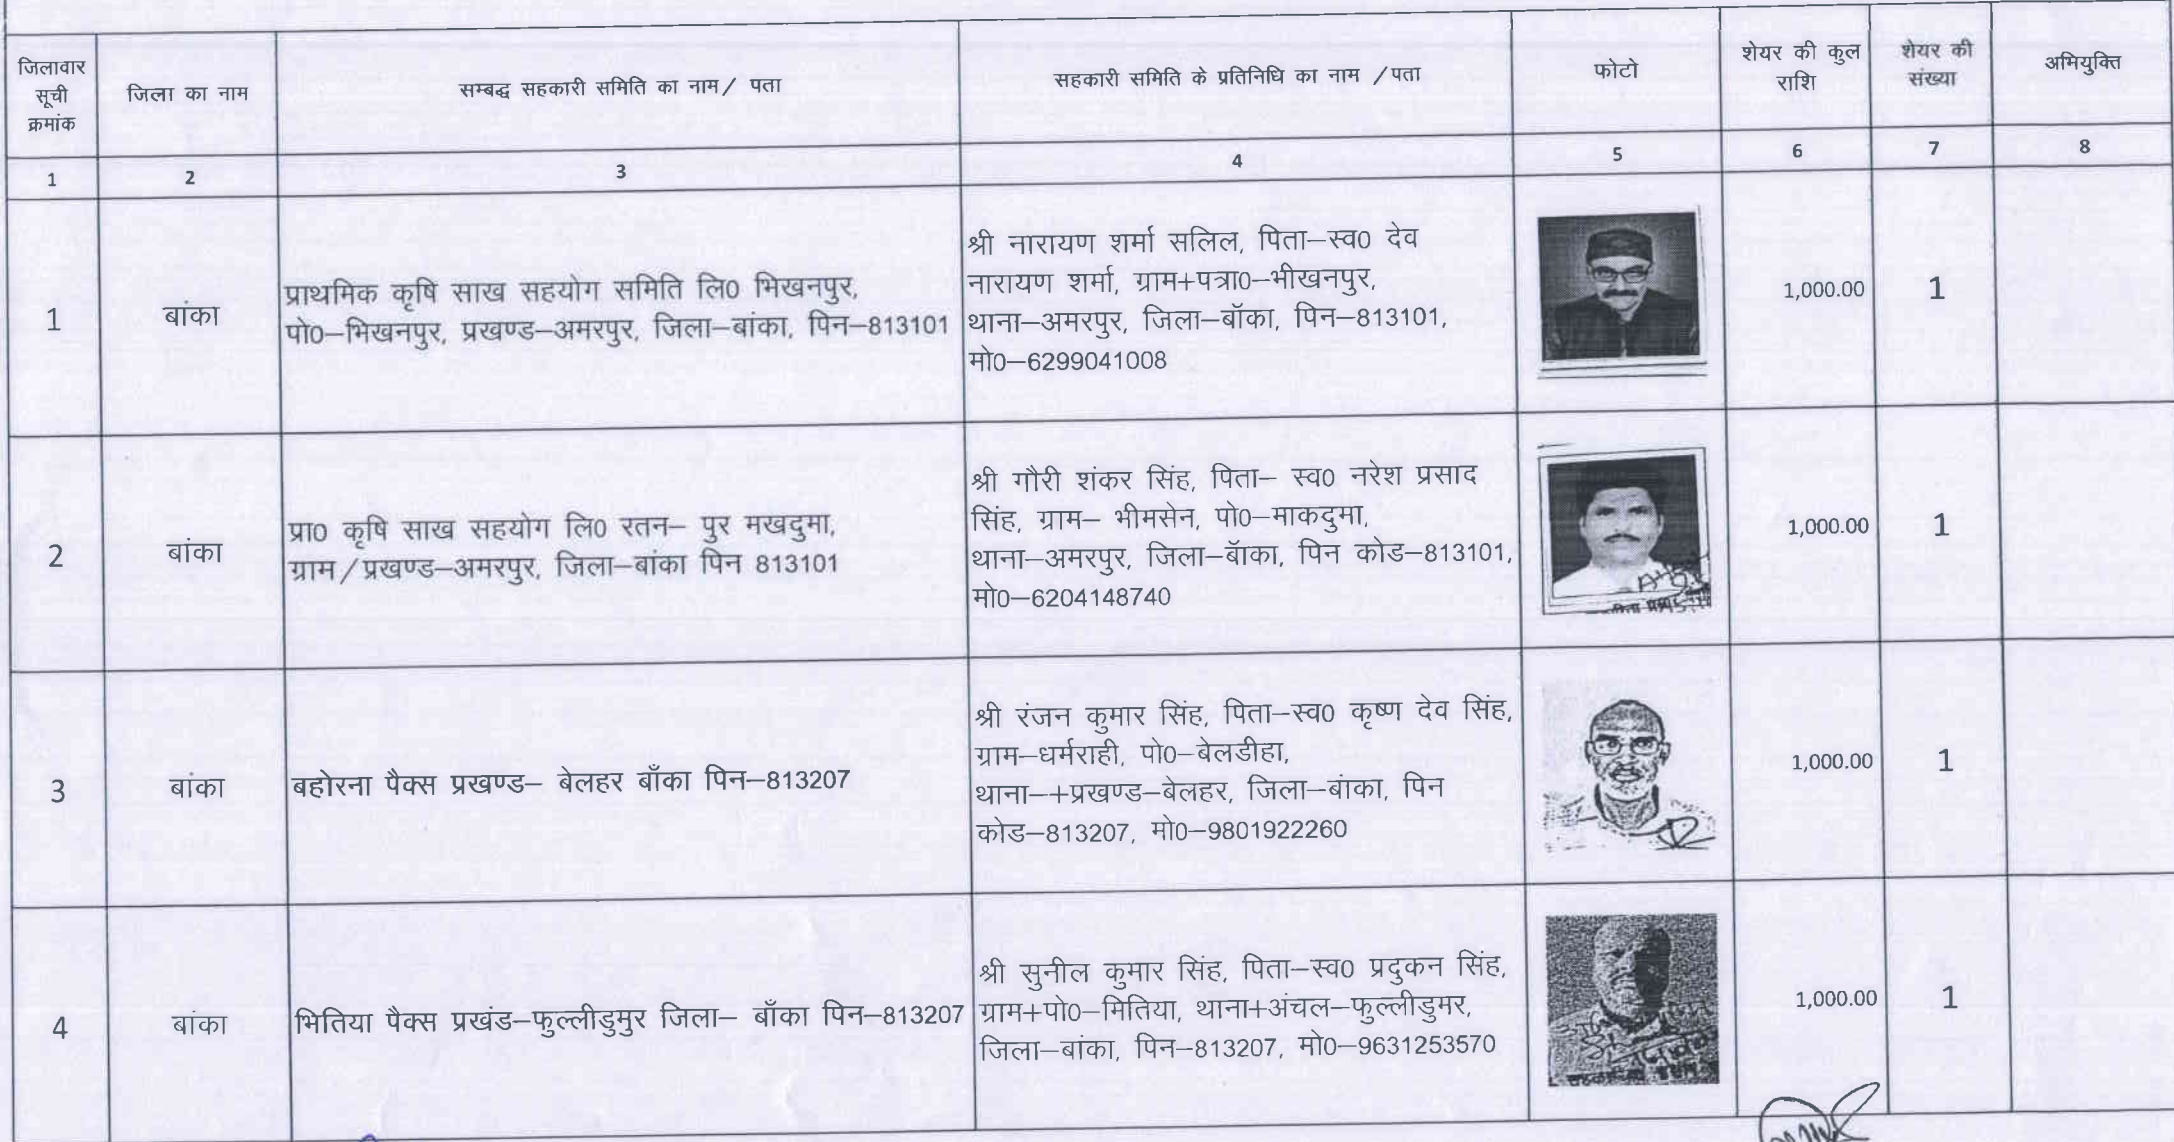 जिलावार
सूची
क्रमांक
जिला का नाम
सम्बद्ध सहकारी समिति का नाम/ पता
सहकारी समिति के प्रतिनिधि का नाम /पता
फोटो
शेयर की कुल
राशि
शेयर की
संख्या
अभियुक्ति
1 2 3 4 5 6 7 8
1
बांका
प्राथमिक कृषि साख सहयोग समिति लि0 भिखनपुर,
पो0–भिखनपुर, प्रखण्ड–अमरपुर, जिला–बांका, पिन–813101
श्री नारायण शर्मा सलिल, पिता–स्व0 देव
नारायण शर्मा, ग्राम+पत्रा0–भीखनपुर,
थाना–अमरपुर, जिला–बॉका, पिन–813101,
मो0–6299041008
1,000.00
1
2
बांका
प्रा0 कृषि साख सहयोग लि0 रतन– पुर मखदुमा,
ग्राम/प्रखण्ड–अमरपुर, जिला–बांका पिन 813101
श्री गौरी शंकर सिंह, पिता– स्व0 नरेश प्रसाद
सिंह, ग्राम– भीमसेन, पो0–माकदुमा,
थाना–अमरपुर, जिला–बॅाका, पिन कोड–813101,
मो0–6204148740
1,000.00
1
3
बांका
बहोरना पैक्स प्रखण्ड– बेलहर बाँका पिन–813207
श्री रंजन कुमार सिंह, पिता–स्व0 कृष्ण देव सिंह,
ग्राम–धर्मराही, पो0–बेलडीहा,
थाना–+प्रखण्ड–बेलहर, जिला–बांका, पिन
कोड–813207, मो0–9801922260
1,000.00
1
4
बांका
भितिया पैक्स प्रखंड–फुल्लीडुमुर जिला– बाँका पिन–813207
श्री सुनील कुमार सिंह, पिता–स्व0 प्रदुकन सिंह,
ग्राम+पो0–मितिया, थाना+अंचल–फुल्लीडुमर,
जिला–बांका, पिन–813207, मो0–9631253570
1,000.00
1